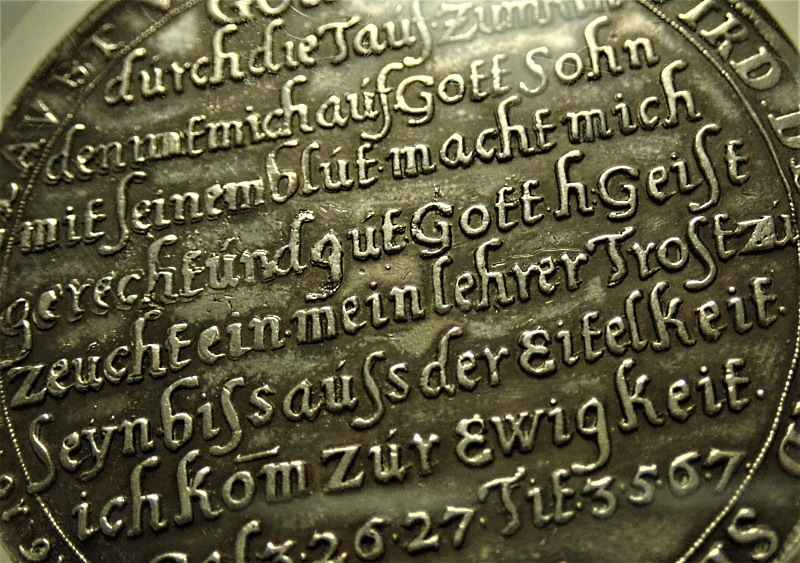 durch die Tauf. Zum
den nimt mich auf. Gott Sohn
mit seinem blut. macht mich
gerecht und gut. Gott h. Geist
zeucht ein. mein lehrer Trost zu
seyn. biss auss der Eitelkeit.
ich kom̄ zur Ewigkeit.
3. 26. 27. Tit. 3. 5. 6. 7.
IRD. DE